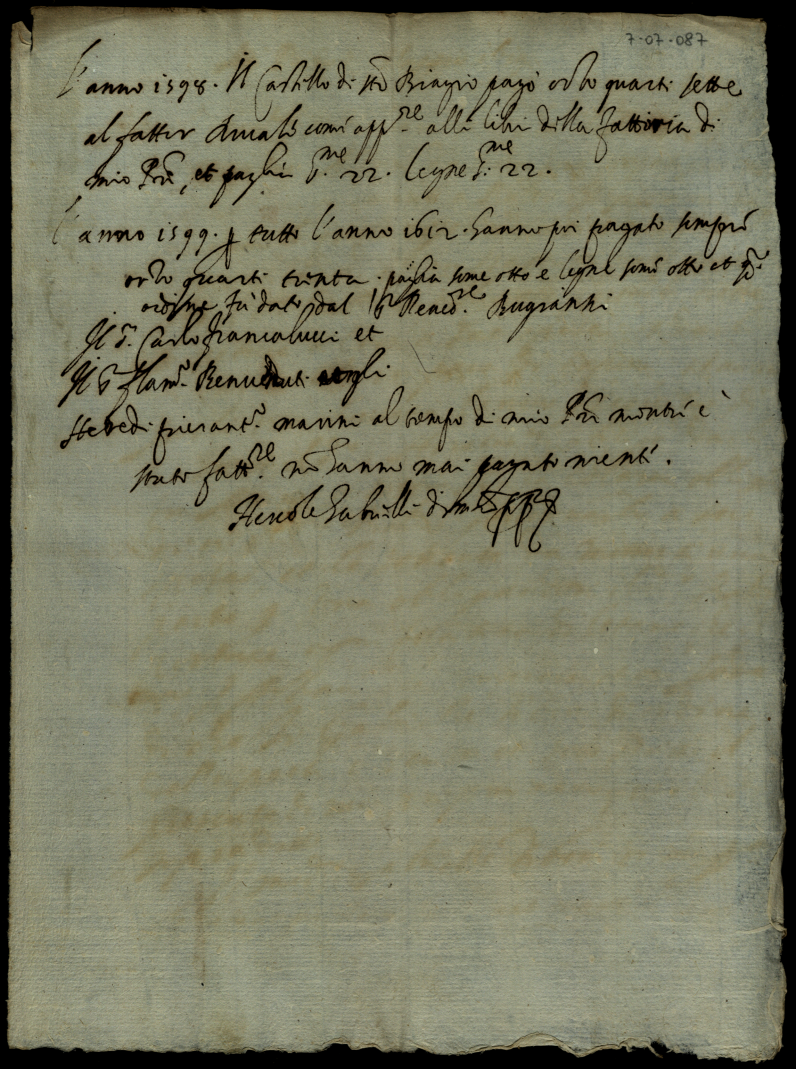 7-07-087
l'anno 1598. Il Castello di Sto Biagio pagò orzo quarti sette
al fattor Ducale come app.re alli libri della fattoria di
mio Pre, et paglia s.me 22. legne s.me 22.
l'anno 1599. p tutto l'anno 1612. hanno poi pagato sempre
orzo quarti trenta. paglia some otto e legne some otto et
ordine fu dato dal
Il S.r Carlo Francolucci et
Il S.r Flam.o Benveduti
Heredi Pierant.o Marini al tempo di mio Pre mentre è
stato fatt.re nō hanno mai pagato niente.
Hercole Gabrielli